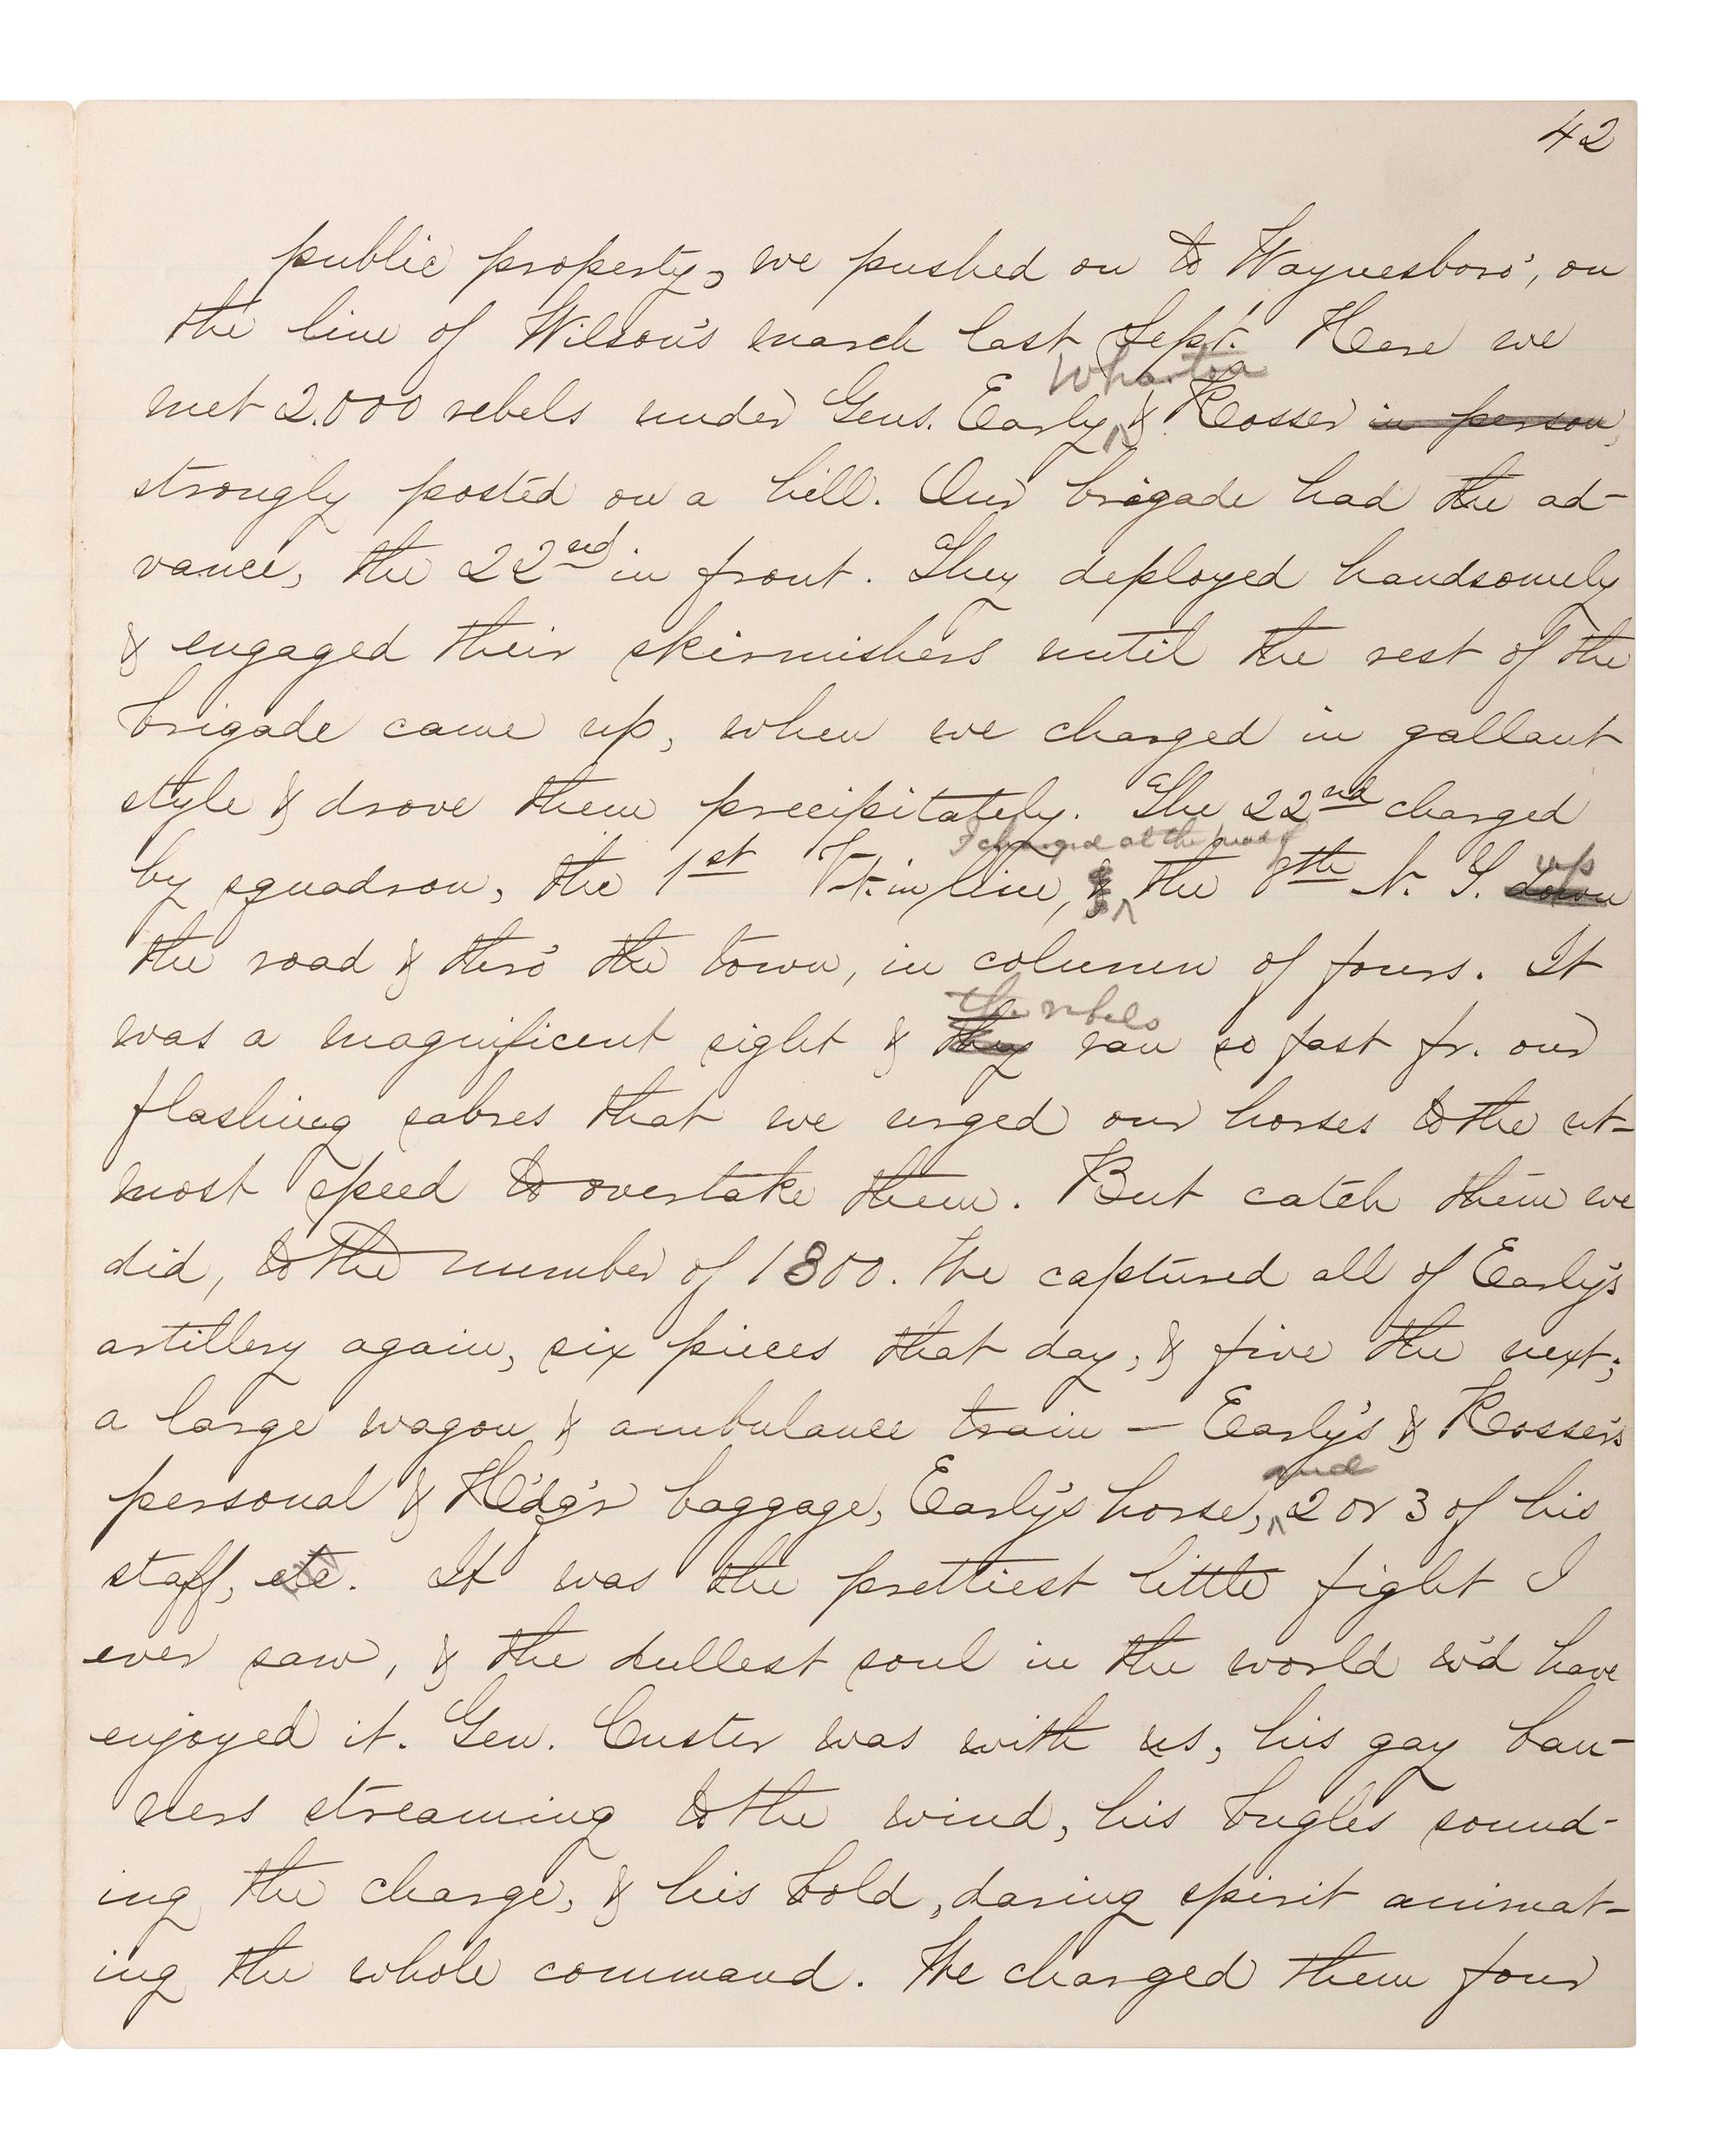 42
public property, we pushed on to Waynesboro', on
the line of Wilson's march last Sept. Here we
Wharton
met 2.000 rebels under Gens. Early & Rosser in person,
strongly posted on a hill. Our brigade had the ad-
vance, the 22nd in front. They deployed handsomely
& engaged their skirmishers until the rest of the
brigade came up, when we charged in gallant
style & drove them precipitately. The 22nd charged
I charged at the head of
by squadron, the 1st Vt. in line, & the 8th N. Y. down up
the road & thro' the town, in column of fours. It
the rebels
was a magnificent sight & they ran so fast fr. our
flashing sabres that we urged our horses to the ut-
most speed to overtake them. But catch them we
did, to the number of 1800. We captured all of Early's
artillery again, six pieces that day, & five the next;
a large wagon & ambulance train — Early's & Rosser's
and
personal & H'dq'r baggage, Early's horse, 2 or 3 of his
staff, etc. It was the prettiest little fight I
ever saw, & the dullest soul in the world w'd have
enjoyed it. Gen. Custer was with us, his gay ban-
ners streaming to the wind, his bugles sound-
ing the charge, & his bold, daring spirit animat-
ing the whole command. We charged them four